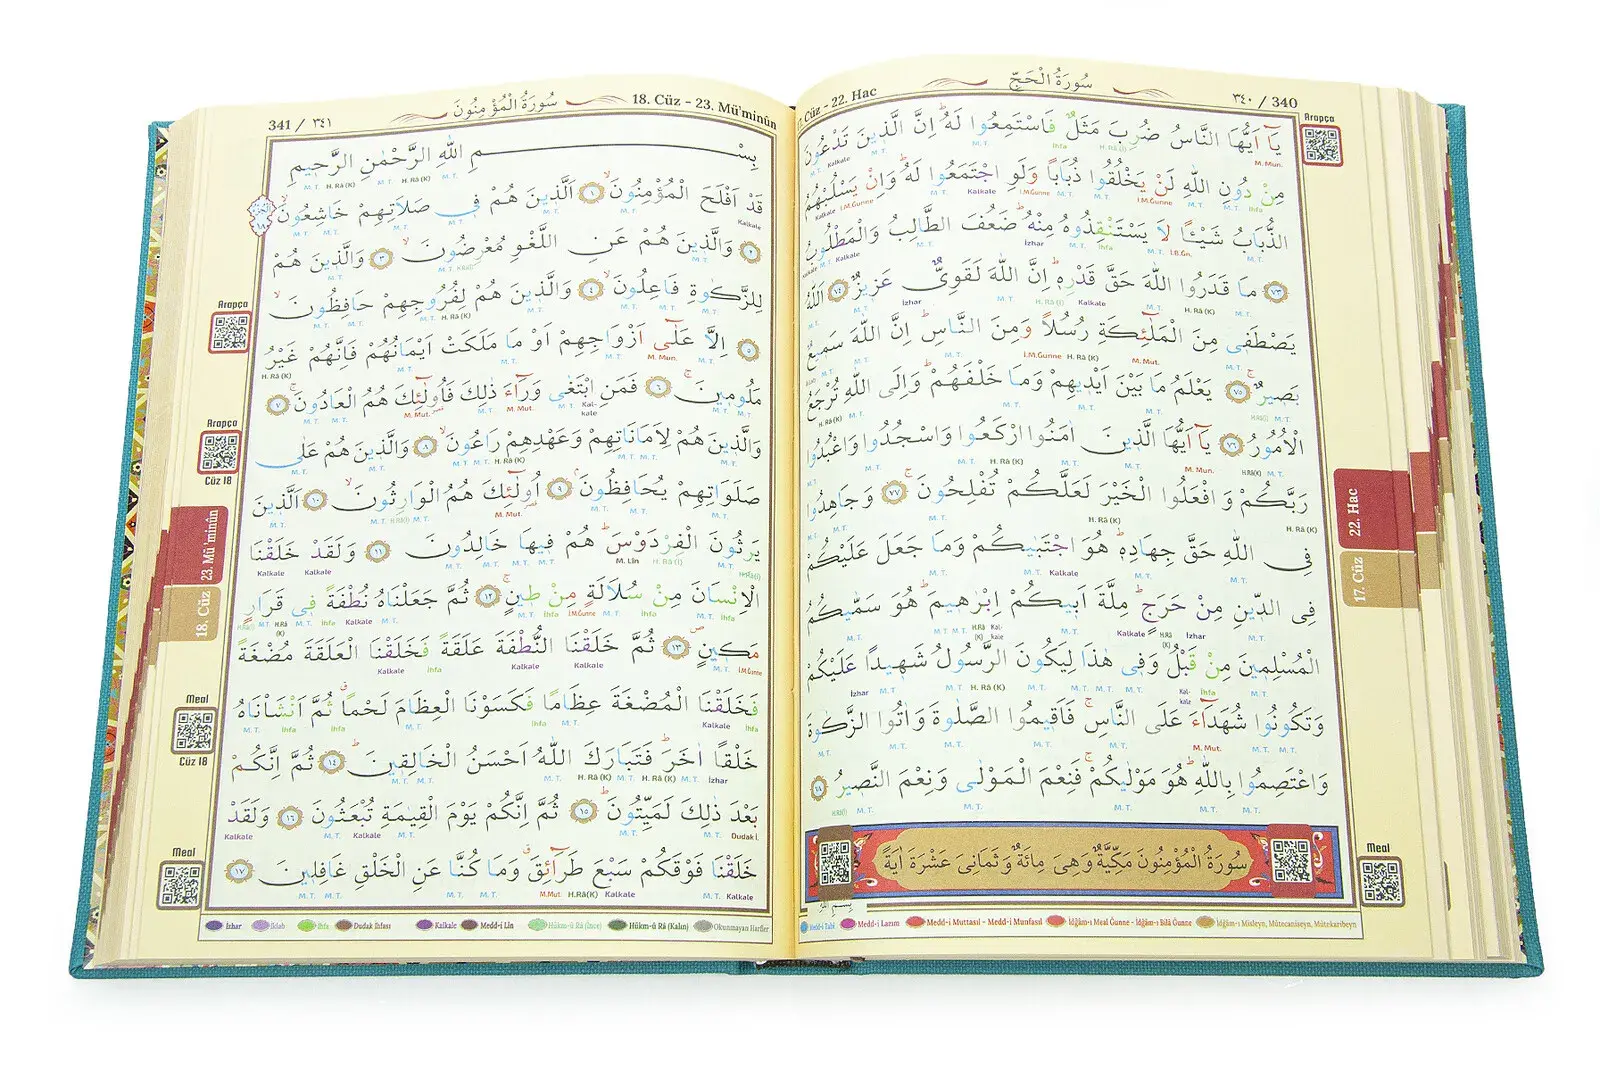 ٣٤٠ / 340
سُورَةُ الْحَجِّ
Cüz - 22. Hac
يَآ اَيُّهَا النَّاسُ ضُرِبَ مَثَلٌ فَاسْتَمِعُوا لَهُ اِنَّ الَّذ۪ينَ تَدْعُونَ
مِنْ دُونِ اللّٰهِ لَنْ يَخْلُقُوا ذُبَاباً وَلَوِ اجْتَمَعُوا لَهُ وَاِنْ يَسْلُبْهُمُ
الذُّبَابُ شَيْـٔاً لَا يَسْتَنْقِذُوهُ مِنْهُ ضَعُفَ الطَّالِبُ وَالْمَطْلُوبُ
﴿٧٣﴾ مَا قَدَرُوا اللّٰهَ حَقَّ قَدْرِه۪ اِنَّ اللّٰهَ لَقَوِيٌّ عَز۪يزٌ ﴿٧٤﴾ اَللّٰهُ
يَصْطَف۪ي مِنَ الْمَلٰٓئِكَةِ رُسُلاً وَمِنَ النَّاسِ اِنَّ اللّٰهَ سَم۪يعٌ
بَص۪يرٌ ﴿٧٥﴾ يَعْلَمُ مَا بَيْنَ اَيْد۪يهِمْ وَمَا خَلْفَهُمْ وَاِلَى اللّٰهِ تُرْجَعُ
الْاُمُورُ ﴿٧٦﴾ يَآ اَيُّهَا الَّذ۪ينَ اٰمَنُوا ارْكَعُوا وَاسْجُدُوا وَاعْبُدُوا
رَبَّكُمْ وَافْعَلُوا الْخَيْرَ لَعَلَّكُمْ تُفْلِحُونَ ﴿٧٧﴾ وَجَاهِدُوا
فِي اللّٰهِ حَقَّ جِهَادِه۪ هُوَ اجْتَبٰيكُمْ وَمَا جَعَلَ عَلَيْكُمْ
فِي الدّ۪ينِ مِنْ حَرَجٍ مِلَّةَ اَب۪يكُمْ اِبْرٰه۪يمَ هُوَ سَمّٰيكُمُ
الْمُسْلِم۪ينَ مِنْ قَبْلُ وَف۪ي هٰذَا لِيَكُونَ الرَّسُولُ شَه۪يداً عَلَيْكُمْ
وَتَكُونُوا شُهَدَآءَ عَلَى النَّاسِ فَاَق۪يمُوا الصَّلٰوةَ وَاٰتُوا الزَّكٰوةَ
وَاعْتَصِمُوا بِاللّٰهِ هُوَ مَوْلٰيكُمْ فَنِعْمَ الْمَوْلٰى وَنِعْمَ النَّص۪يرُ ﴿٧٨﴾
سُورَةُ الْمُؤْمِنُونَ مَكِّيَّةٌ وَهِيَ مِائَةٌ وَثَمَانِيَ عَشْرَةَ اٰيَةً
Medd-i Tabii Medd-i Lazım Medd-i Muttasıl - Medd-i Munfasıl İdğam-ı Meal Ğunne - İdğam-ı Bilâ Ğunne İdğam-ı Misleyn, Mütecaniseyn, Mütekaribeyn
Arapça
22. Hac
17. Cüz
Meal
341 / ٣٤١
سُورَةُ الْمُؤْمِنُونَ
18. Cüz - 23. Mü'minûn
بِسْمِ اللّٰهِ الرَّحْمٰنِ الرَّح۪يمِ
قَدْ اَفْلَحَ الْمُؤْمِنُونَ ﴿١﴾ اَلَّذ۪ينَ هُمْ ف۪ي صَلَاتِهِمْ خَاشِعُونَ
﴿٢﴾ وَالَّذ۪ينَ هُمْ عَنِ اللَّغْوِ مُعْرِضُونَ ﴿٣﴾ وَالَّذ۪ينَ هُمْ
لِلزَّكٰوةِ فَاعِلُونَ ﴿٤﴾ وَالَّذ۪ينَ هُمْ لِفُرُوجِهِمْ حَافِظُونَ
﴿٥﴾ اِلَّا عَلٰٓى اَزْوَاجِهِمْ اَوْ مَا مَلَكَتْ اَيْمَانُهُمْ فَاِنَّهُمْ غَيْرُ
مَلُوم۪ينَ ﴿٦﴾ فَمَنِ ابْتَغٰى وَرَآءَ ذٰلِكَ فَاُولٰٓئِكَ هُمُ الْعَادُونَ ﴿٧﴾
وَالَّذ۪ينَ هُمْ لِاَمَانَاتِهِمْ وَعَهْدِهِمْ رَاعُونَ ﴿٨﴾ وَالَّذ۪ينَ هُمْ عَلٰى
صَلَوَاتِهِمْ يُحَافِظُونَ ﴿٩﴾ اُولٰٓئِكَ هُمُ الْوَارِثُونَ ﴿١٠﴾ اَلَّذ۪ينَ
يَرِثُونَ الْفِرْدَوْسَ هُمْ ف۪يهَا خَالِدُونَ ﴿١١﴾ وَلَقَدْ خَلَقْنَا
الْاِنْسَانَ مِنْ سُلَالَةٍ مِنْ ط۪ينٍ ﴿١٢﴾ ثُمَّ جَعَلْنَاهُ نُطْفَةً ف۪ي قَرَارٍ
مَك۪ينٍ ﴿١٣﴾ ثُمَّ خَلَقْنَا النُّطْفَةَ عَلَقَةً فَخَلَقْنَا الْعَلَقَةَ مُضْغَةً
فَخَلَقْنَا الْمُضْغَةَ عِظَاماً فَكَسَوْنَا الْعِظَامَ لَحْماً ثُمَّ اَنْشَأْنَاهُ
خَلْقاً اٰخَرَ فَتَبَارَكَ اللّٰهُ اَحْسَنُ الْخَالِق۪ينَ ﴿١٤﴾ ثُمَّ اِنَّكُمْ
بَعْدَ ذٰلِكَ لَمَيِّتُونَ ﴿١٥﴾ ثُمَّ اِنَّكُمْ يَوْمَ الْقِيٰمَةِ تُبْعَثُونَ ﴿١٦﴾ وَلَقَدْ
خَلَقْنَا فَوْقَكُمْ سَبْعَ طَرَآئِقَ وَمَا كُنَّا عَنِ الْخَلْقِ غَافِل۪ينَ ﴿١٧﴾
İzhar İklab İhfa Dudak İhfası Kalkale Medd-i Lîn Hükm-û Râ (İnce) Hükm-û Râ (Kalın) Okunmayan Harfler
Arapça
Arapça
Cüz 18
23. Mü'minûn
18. Cüz
Meal
Cüz 18
Meal